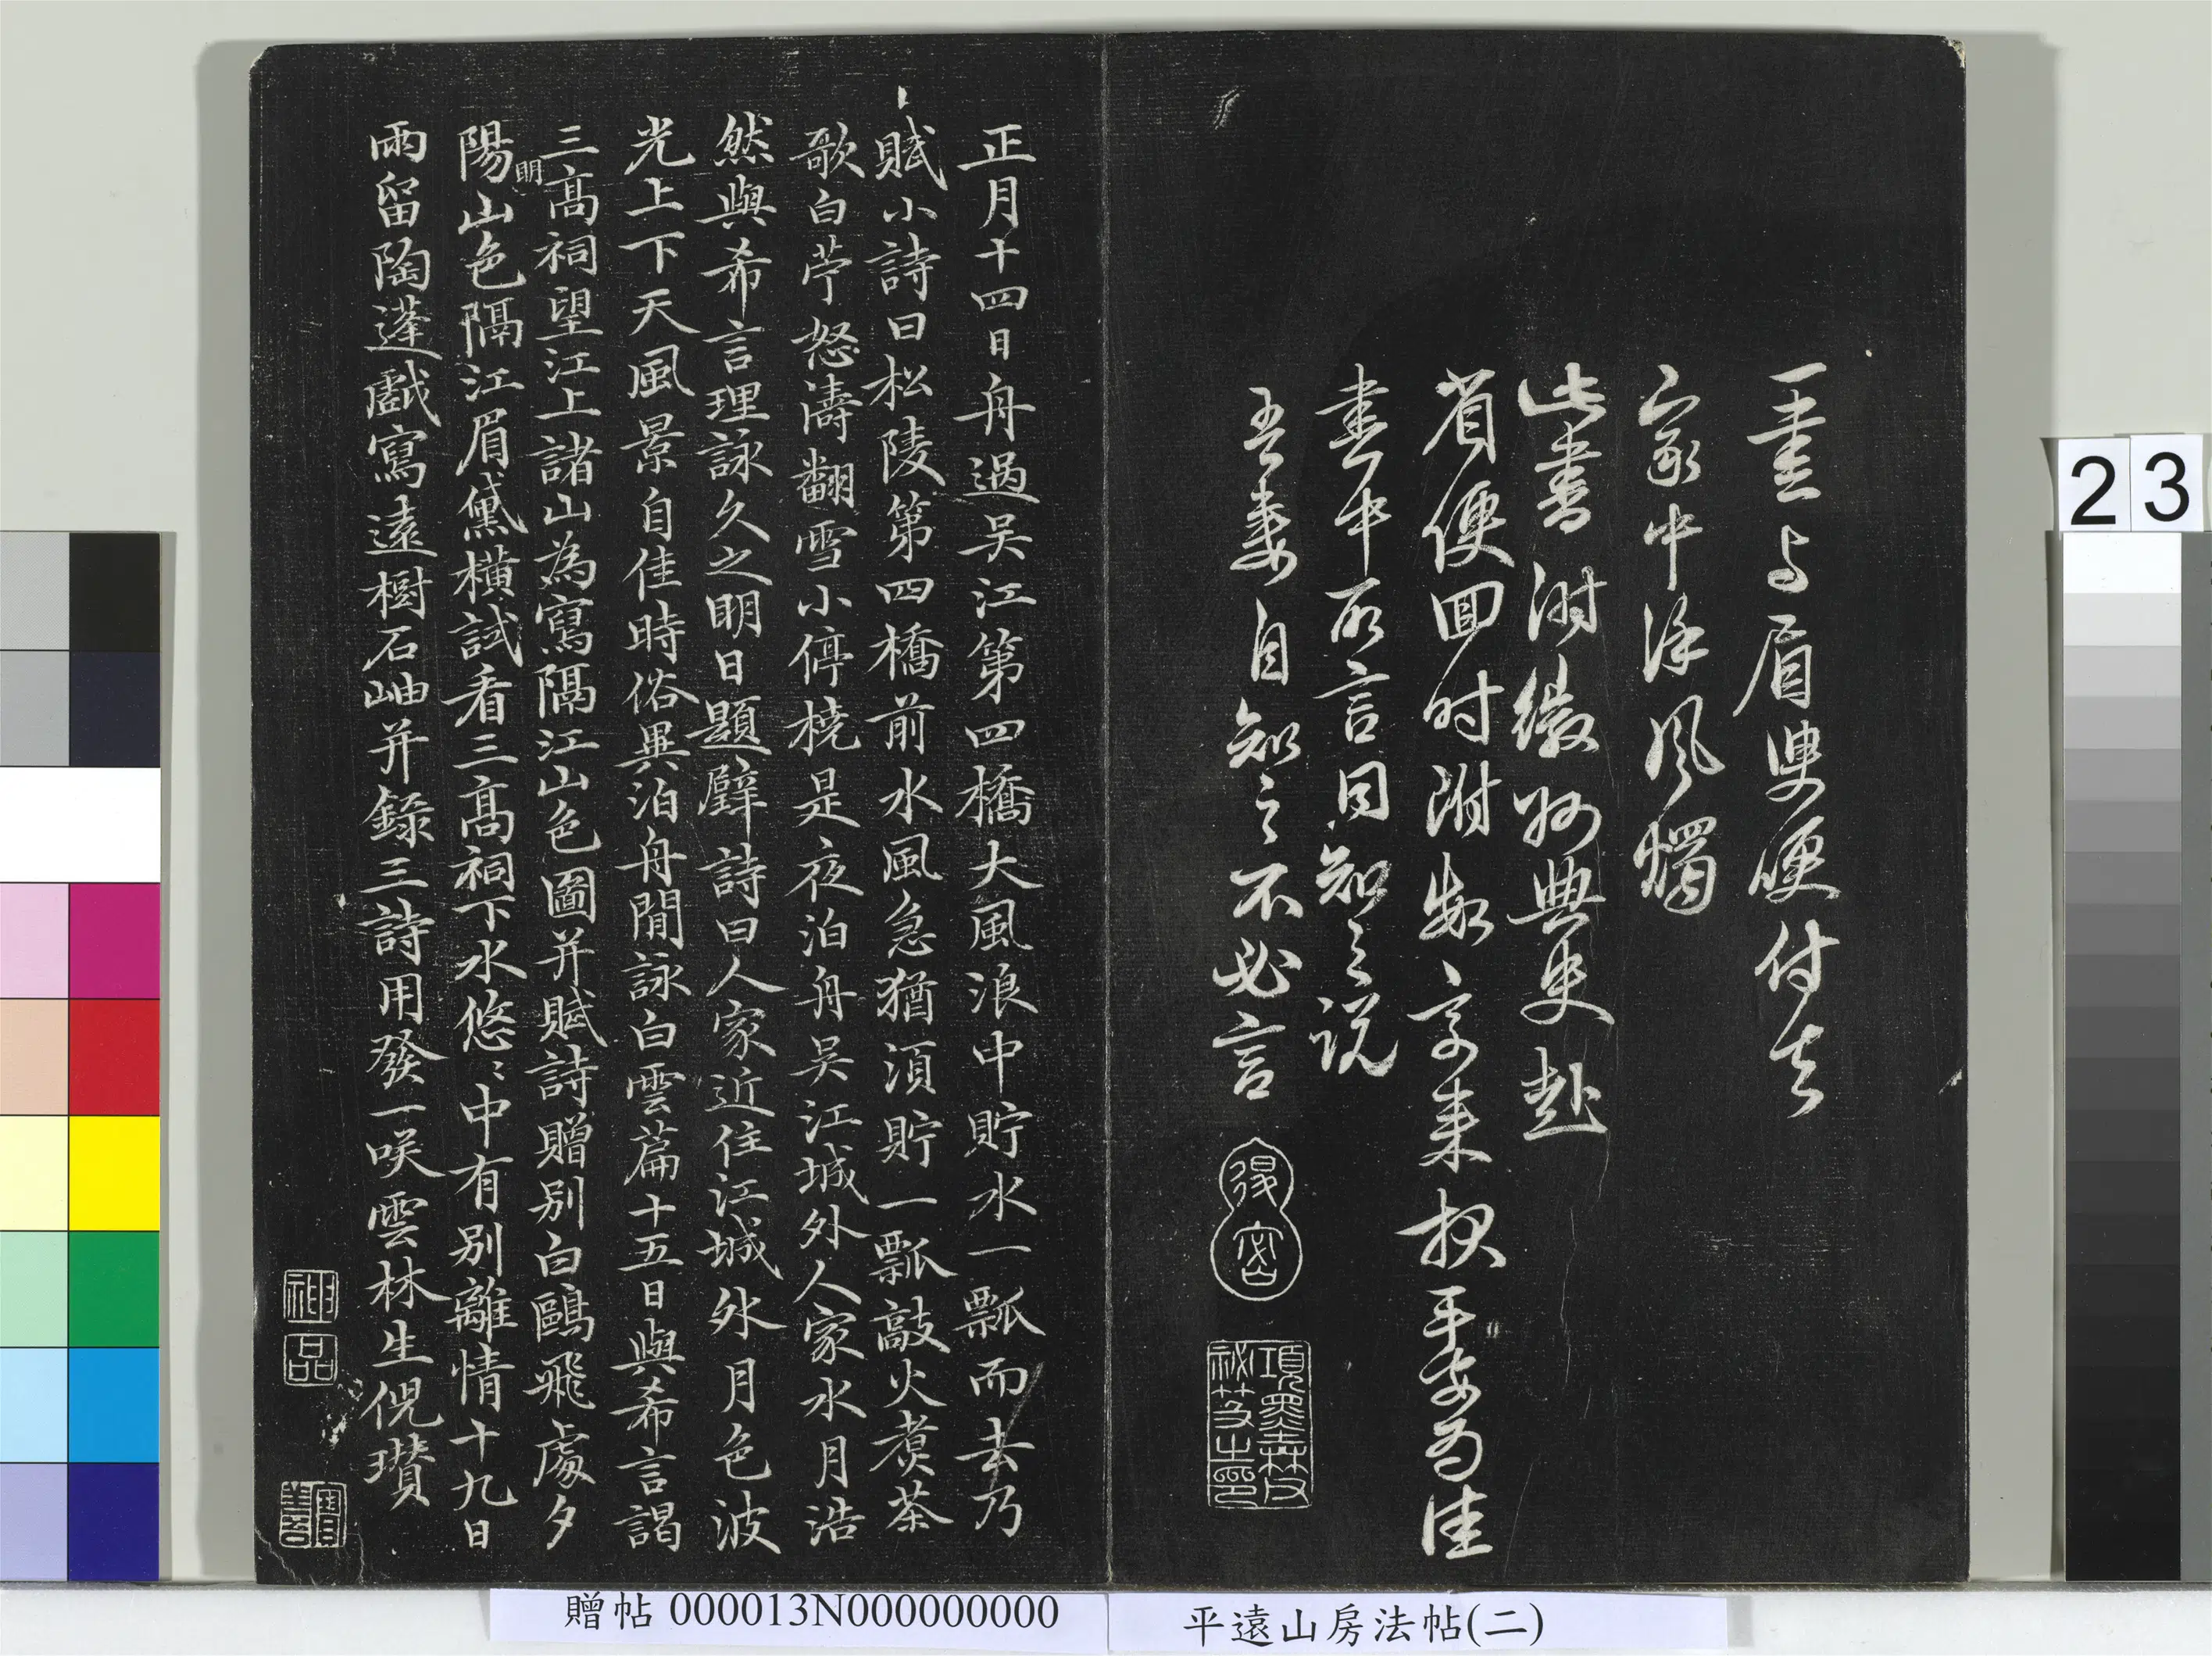 一畫与眉叟便付去
家中深風燭
此書附徽州典史赴
省便回时附
書中所言同知之说
吾妻自知之不必言
項墨林父
祕笈之印
正月十四日舟過吴江第四橋大風浪中貯水一瓢而去乃
賦小詩曰松陵第四橋前水風急猶須貯一瓢敲火煮茶
歌白苧怒濤翻雪小停橈是夜泊舟吴江城外人家水月浩
然與希言理詠久之明日題壁詩曰人家近住江城外月色波
光上下天風景自佳時俗異泊舟閒詠白雲篇十五日與希言謁
三高祠望江上諸山為寫隔江山色圖并賦詩贈别白鷗飛處夕
陽明山色隔江眉黛横試看三高祠下水悠〻中有别離情十九日
雨留陶蓬戲寫遠樹石岫并録三詩用發一咲雲林生倪瓚
神
品
23
贈帖 000013N000000000
平遠山房法帖(二)